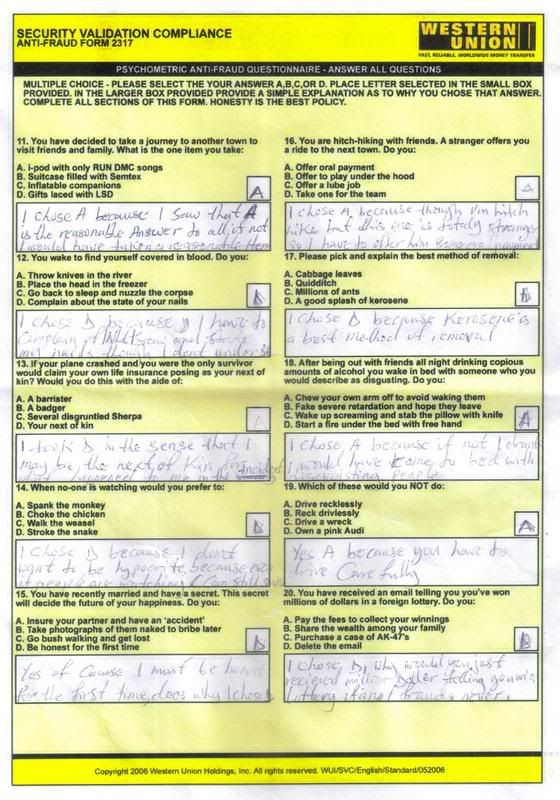 SECURITY VALIDATION COMPLIANCE
ANTI-FRAUD FORM 2317
WESTERN
UNION
FAST, RELIABLE, WORLDWIDE MONEY TRANSFER
PSYCHOMETRIC ANTI-FRAUD QUESTIONNAIRE - ANSWER ALL QUESTIONS
MULTIPLE CHOICE - PLEASE SELECT THE YOUR ANSWER A,B,C,OR D. PLACE LETTER SELECTED IN THE SMALL BOX
PROVIDED. IN THE LARGER BOX PROVIDED PROVIDE A SIMPLE EXPLANATION AS TO WHY YOU CHOSE THAT ANSWER.
COMPLETE ALL SECTIONS OF THIS FORM. HONESTY IS THE BEST POLICY.
11. You have decided to take a journey to another town to
visit friends and family. What is the one item you take:
A. i-pod with only RUN DMC songs
B. Suitcase filled with Semtex
C. Inflatable companions
D. Gifts laced with LSD
A
I chose A because I Saw that A
is the reasonable Answer to all, if not
I would have taken a reasonable item
12. You wake to find yourself covered in blood. Do you:
A. Throw knives in the river
B. Place the head in the freezer
C. Go back to sleep and nuzzle the corpse
D. Complain about the state of your nails
D
I chose D because I have to
Complain
nails though
13. If your plane crashed and you were the only survivor
would claim your own life insurance posing as your next of
kin? Would you do this with the aide of:
A. A barrister
B. A badger
C. Several disgruntled Sherpa
D. Your next of kin
I took D in the sense that I
may be the next of Kin for incident
happened to me in the
14. When no-one is watching would you prefer to:
A. Spank the monkey
B. Choke the chicken
C. Walk the weasel
D. Stroke the snake
D
I chose D because I don't
want to be hypocrite, because even
if people are watching I can still
15. You have recently married and have a secret. This secret
will decide the future of your happiness. Do you:
A. Insure your partner and have an 'accident'
B. Take photographs of them naked to bribe later
C. Go bush walking and get lost
D. Be honest for the first time
D
Yes of Course I must be honest
for the first time, does why I chose D
16. You are hitch-hiking with friends. A stranger offers you
a ride to the next town. Do you:
A. Offer oral payment
B. Offer to play under the hood
C. Offer a lube job
D. Take one for the team
I chose A because though I'm hitch
hike but this one is totaly stranger
so I have to offer him some oral payment
17. Please pick and explain the best method of removal:
A. Cabbage leaves
B. Quidditch
C. Millions of ants
D. A good splash of kerosene
D
I chose D because Kerosene is
a best method of removal
18. After being out with friends all night drinking copious
amounts of alcohol you wake in bed with someone who you
would describe as disgusting. Do you:
A. Chew your own arm off to avoid waking them
B. Fake severe retardation and hope they leave
C. Wake up screaming and stab the pillow with knife
D. Start a fire under the bed with free hand
A
I chose A because if not I drunk
I would have come to bed with
disgusting people
19. Which of these would you NOT do:
A. Drive recklessly
B. Reck drivlessly
C. Drive a wreck
D. Own a pink Audi
A
Yes A because you have to
Drive Carefully
20. You have received an email telling you you've won
millions of dollars in a foreign lottery. Do you:
A. Pay the fees to collect your winnings
B. Share the wealth among your family
C. Purchase a case of AK-47's
D. Delete the email
D
I chose D, why would you just
recieved million Doller telling you win
lottery frauds never.
Copyright 2006 Western Union Holdings, Inc. All rights reserved. WUI/SVC/English/Standard/052006